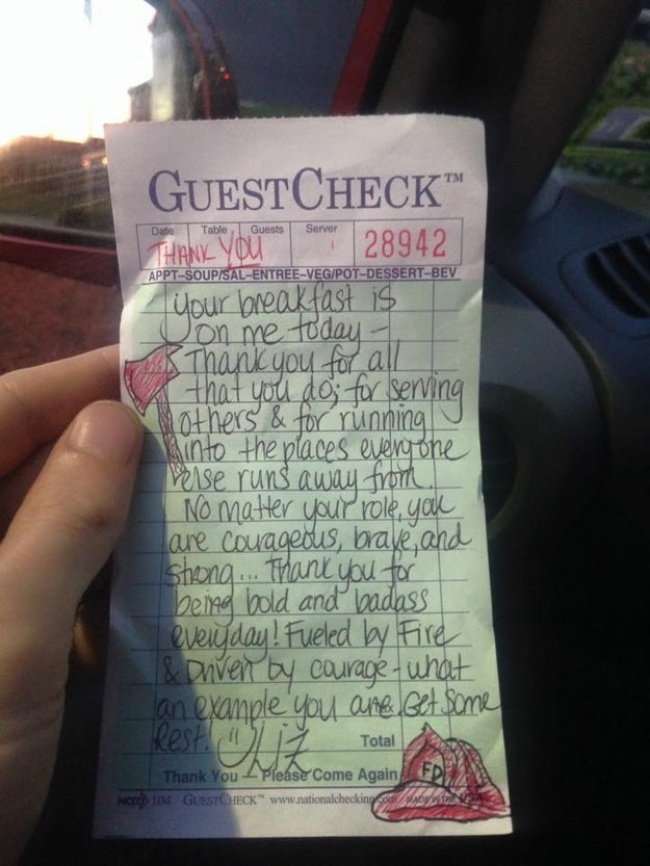 GUESTCHECK™
Date Table Guests Server
THANK YOU 28942
APPT–SOUP/SAL–ENTREE–VEG/POT–DESSERT–BEV
your breakfast is
on me today -
Thank you for all
that you do; for serving
others & for running
into the places everyone
else runs away from.
No matter your role, you
are courageous, brave, and
strong... Thank you for
being bold and badass
everyday! Fueled by Fire
& Driven by courage - what
an example you are. Get Some
Rest! Liz
Total
Thank You – Please Come Again
FD
104 GUESTCHECK™ www.nationalchecking.com MADE IN THE USA